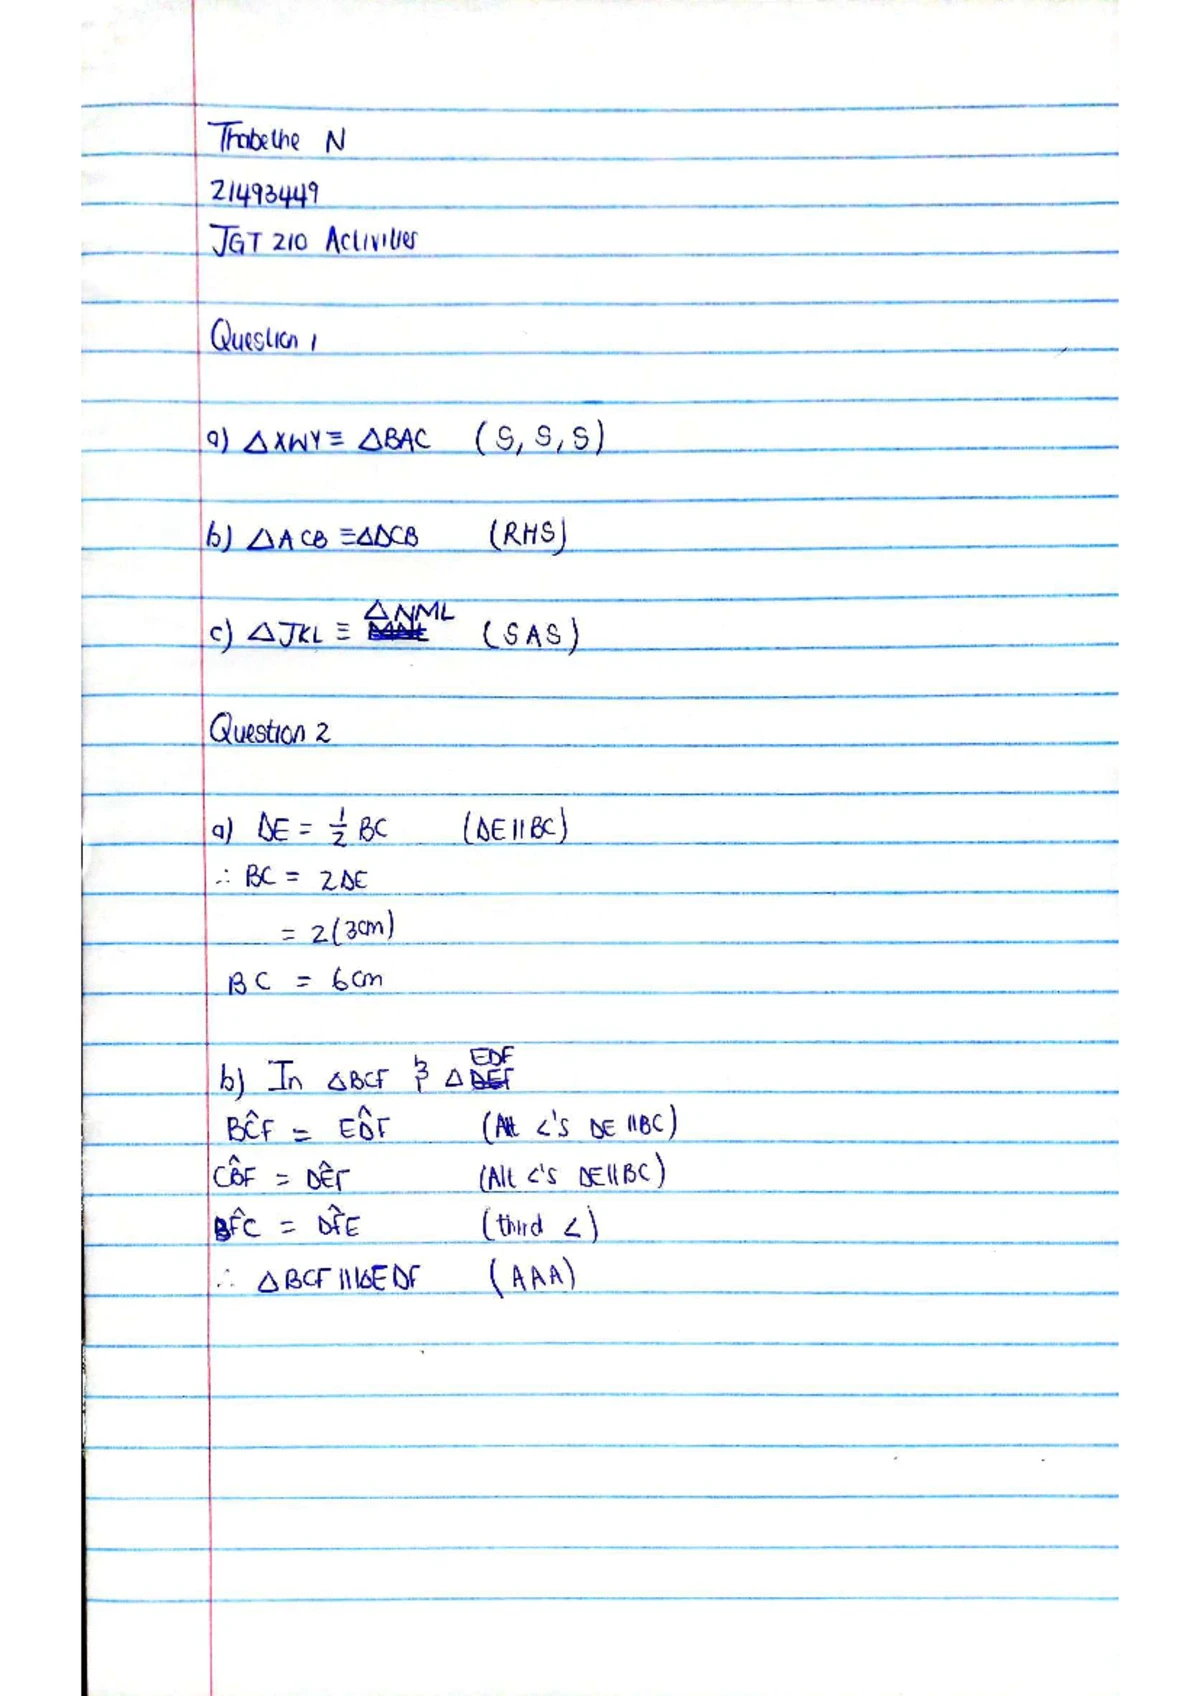 Thabethe N
21493449
JGT 210 Activities
Question 1
a) △XWY ≡ △BAC (S, S, S)
b) △ACB ≡ △DCB (RHS)
c) △JKL ≡ △NML (SAS)
Question 2
a) DE = 1/2 BC (DE||BC)
∴ BC = 2DE
= 2(3cm)
BC = 6cm
b) In △BCF & △EDF
BĈF = ED̂F (Alt <'s DE ||BC)
CB̂F = DÊF (Alt <'s DE||BC)
BF̂C = DF̂E (third <)
∴ △BCF ||| △EDF (AAA)